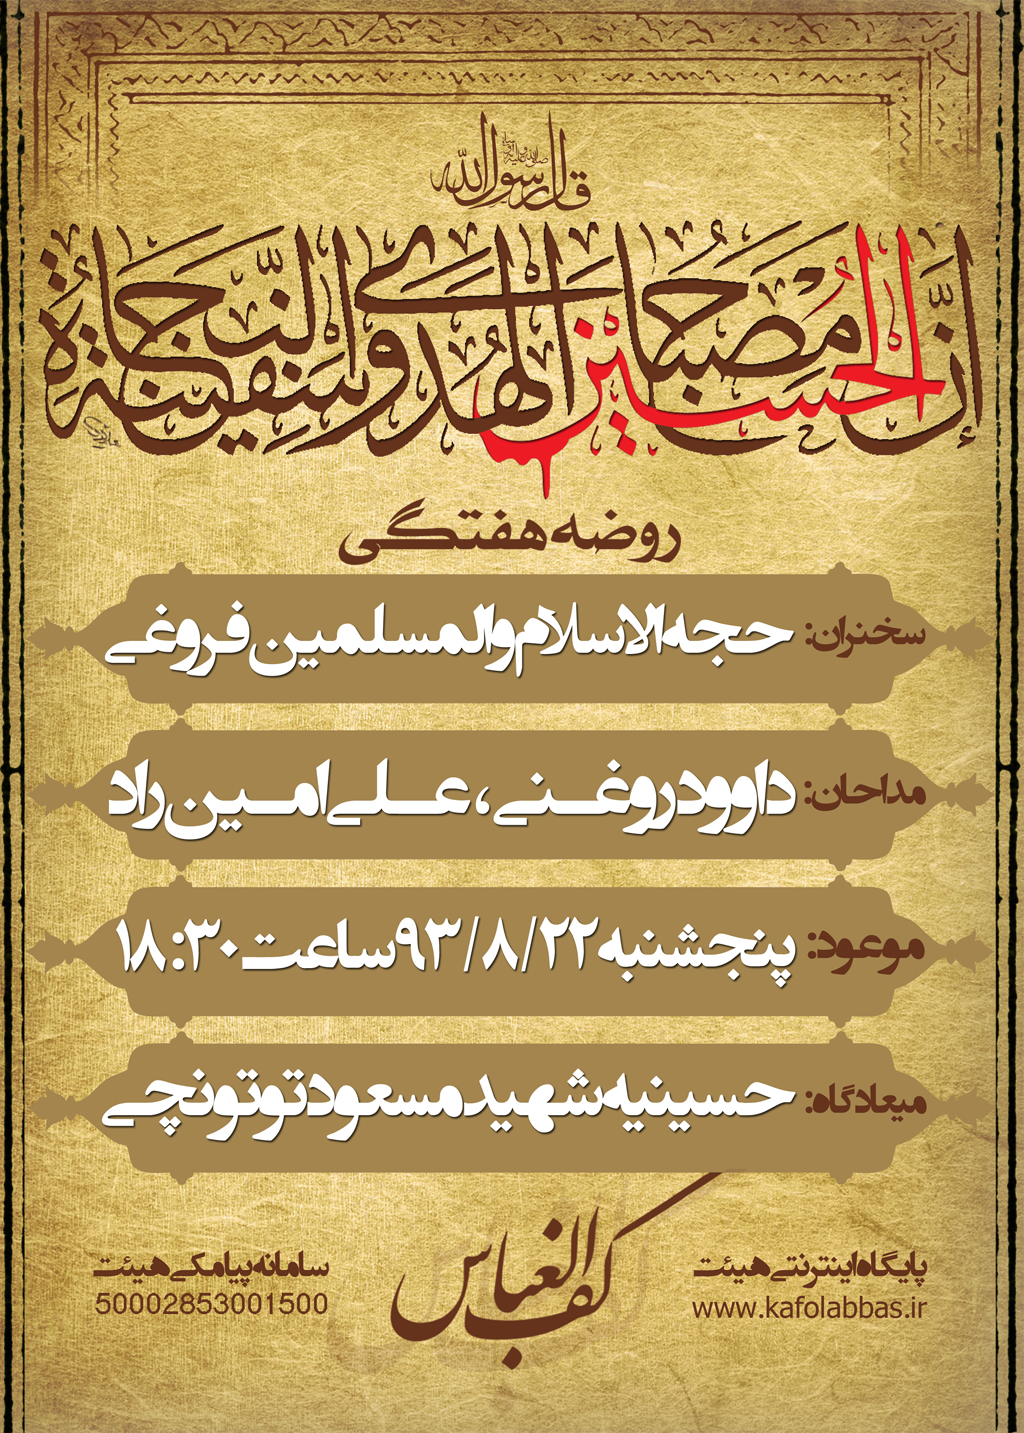 قال رسول الله صلی الله علیه و آله
إنَّ الحسین مصباح الهدی و سفینة النجاة
روضه هفتگی
سخنران: حجه الاسلام والمسلمین فروغی
مداحان: داوود روغنی، علی امین راد
موعود: پنجشنبه ۹۳/۸/۲۲ ساعت ۱۸:۳۰
میعادگاه: حسینیه شهید مسعود توتونچی
کف العباس
پایگاه اینترنتی هیئت
www.kafolabbas.ir
سامانه پیامکی هیئت
50002853001500